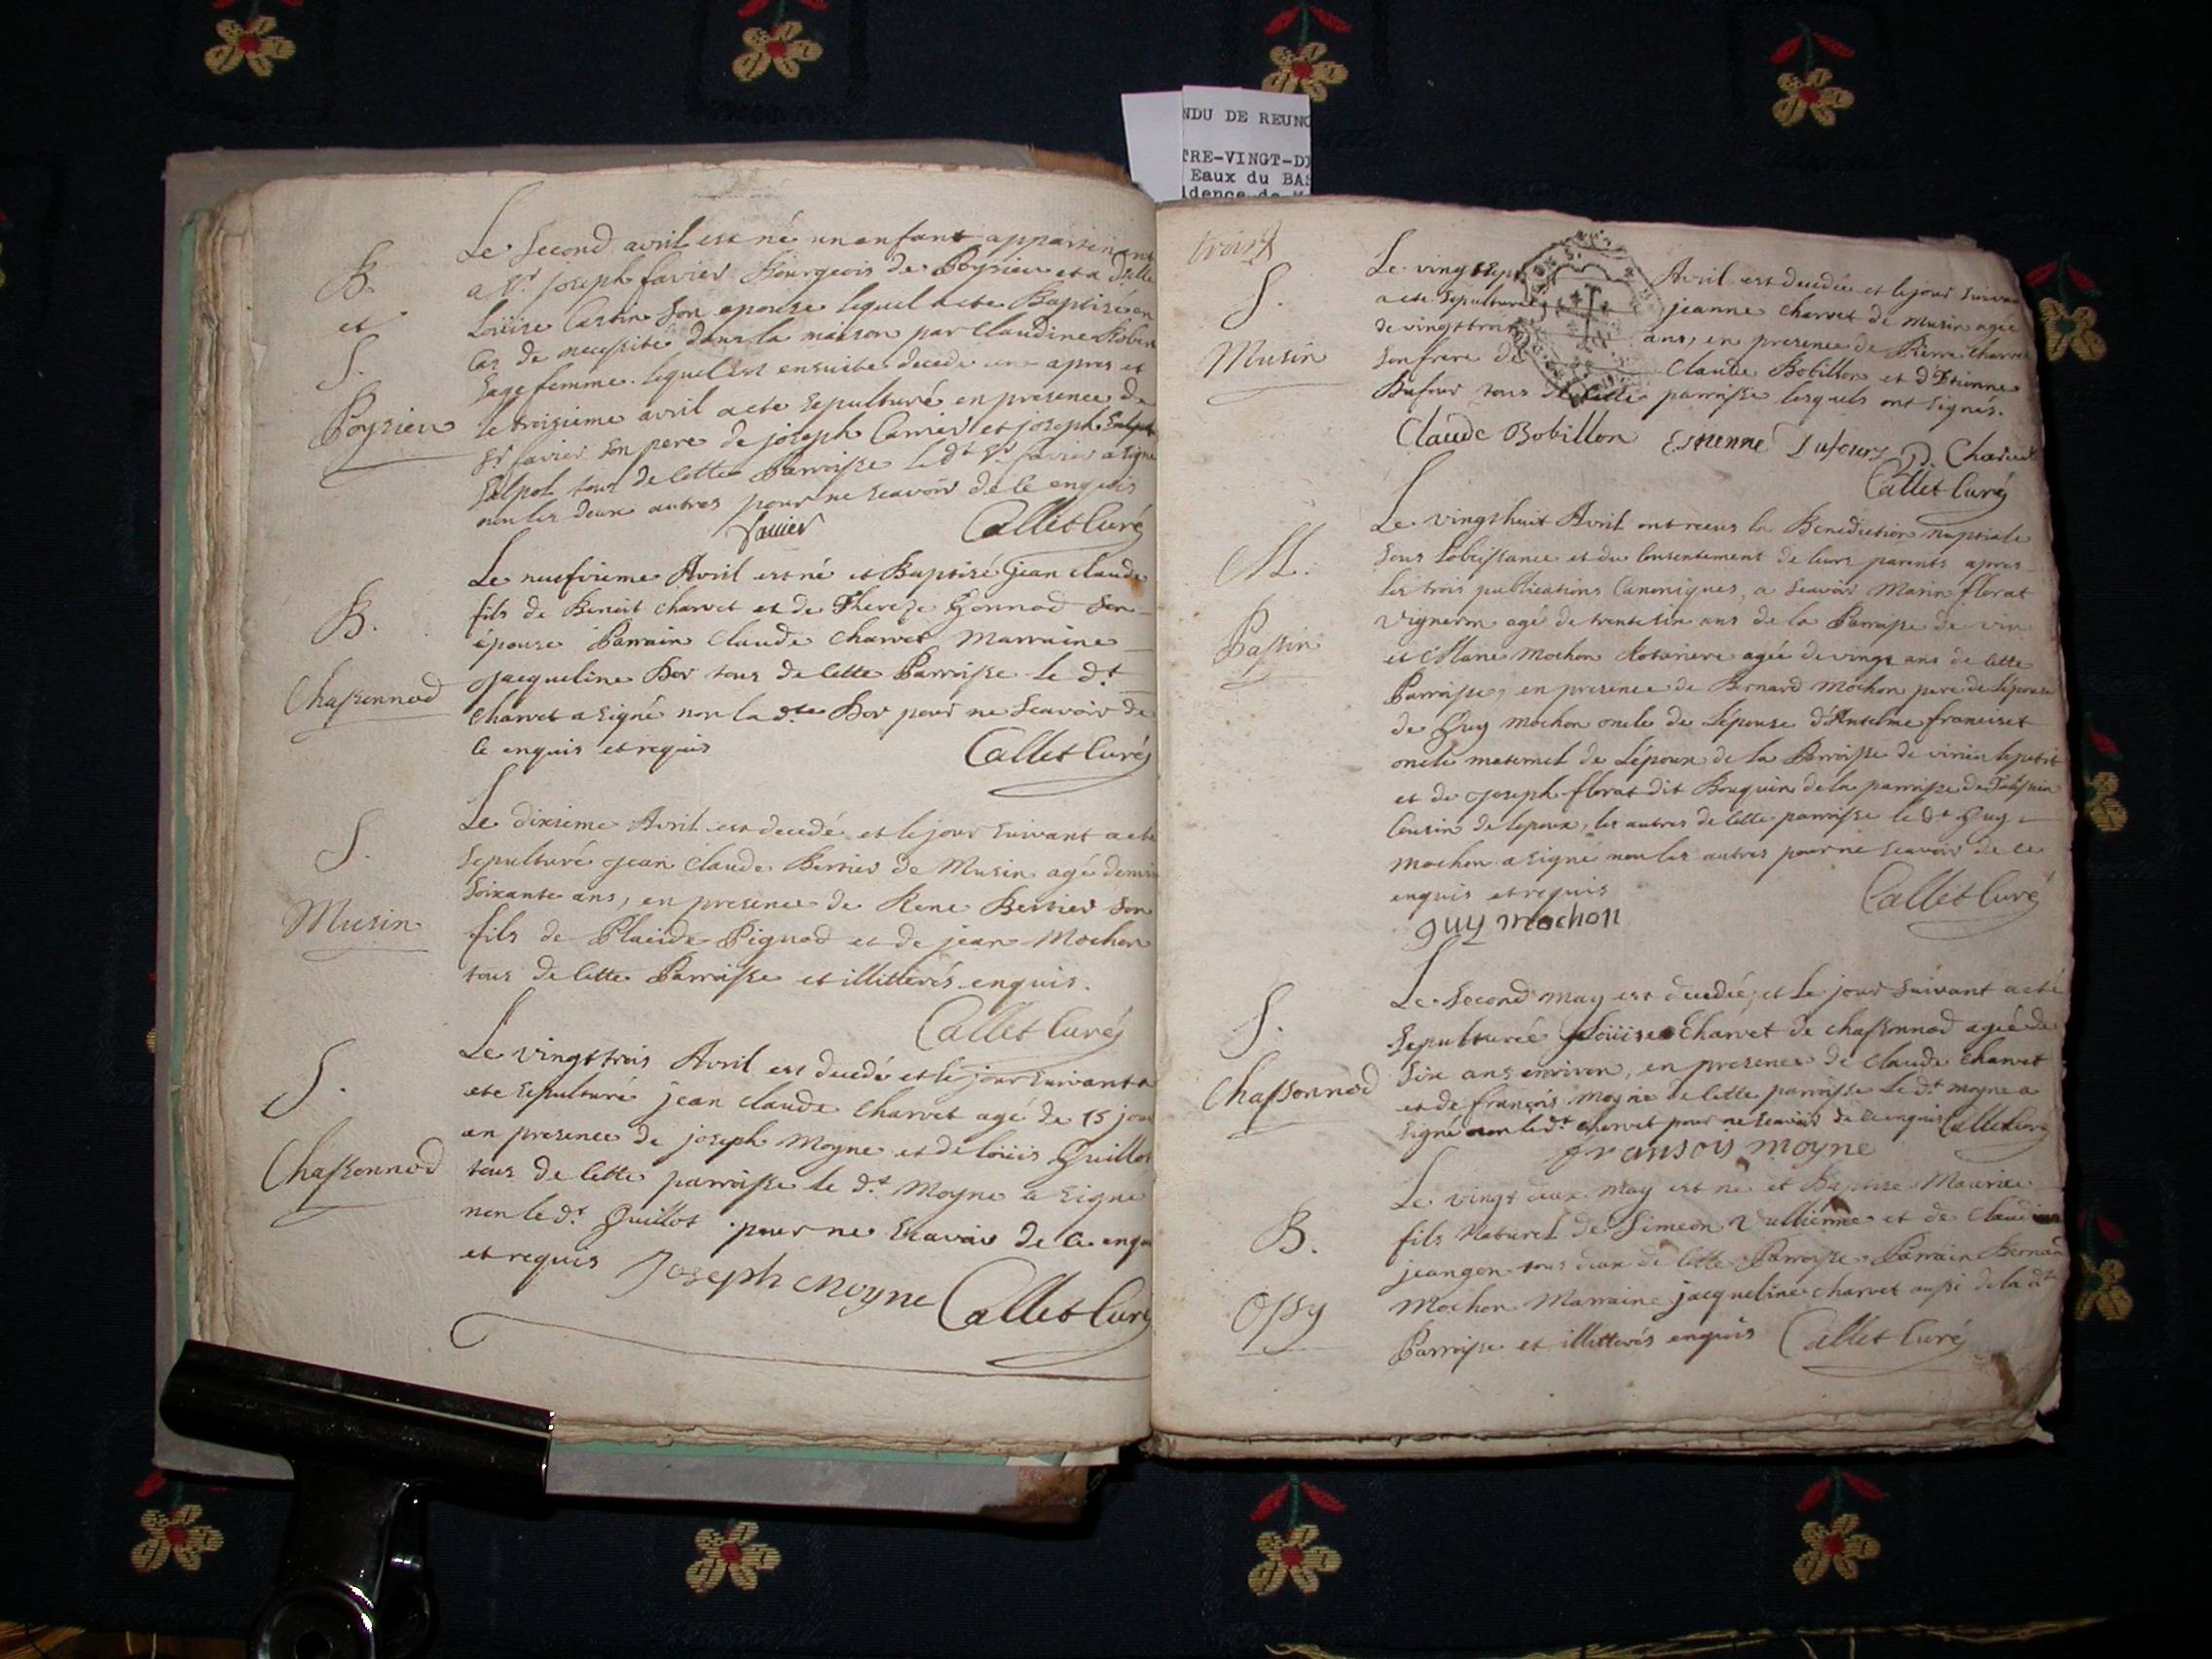 NDU DE REUNO
TRE-VINGT-DI
Eaux du BAS
idence de
B.
et
S.
Poysieu
Le Second avril est né un enfant appartenant
a Sr. Joseph favier Bourgeois de Poysieu et a dlle
Loüise son epouse lequel a ete Baptisé en
Cas de necessité dans la maison par Claudine Robin
Sage femme lequel est ensuite decedé apres et
le troisieme avril a ete sepulturé en presence de
Sr favier son pere de joseph Carrier et joseph
Salpot tous de Cette Parroisse le dt Sr favier a signe
non les deux autres pour ne scavoir de ce enquis
favier Callet Curé
B.
Chassonnod
Le neufvieme Avril est né et Baptisé jean Claude
fils de Benoit Charvet et de Thereze Gonnod son
épouse Parrain Claude Charvet Marraine
Jacqueline Bor tous de Cette Parroisse le dt
Charvet a signé non la dte Bor pour ne Scavoir de
Ce enquis et requis Callet Curé
S.
Musin
Le dixieme Avril est decedé et le jour suivant a ete
Sepulturé jean Claude Berrier de Musin agé
Soixante ans, en presence de Rene Berrier son
fils de Placide Pignod et de jean Mochon
tous de Cette Parroisse et illitterés enquis.
Callet Curé
S.
Chassonnod
Le vingt trois Avril est decedé et le jour suivant a
ete sepulturé jean Claude Charvet agé de 15 jour
en presence de joseph Moyne et de loüis Guillot
tous de Cette parroisse le dt Moyne a signe
non le dt Guillot pour ne Scavoir de Ce enquis
et requis Joseph Moyne Callet Curé
trois
S.
Musin
Le vingt sept Avril est decedée et le jour suivan
a ete sepulturée jeanne Charvet de Musin agée
de vingt trois ans, en presence de Pierre Charvet
son frere de Claude Bobillon et d'Etienne
Dufour tous de Cette parroisse lesquels ont signés.
Claude Bobillon Estienne Dufour P. Charvet
Callet Curé
M.
Passin
Le vingt huit Avril ont reçus la Benediction nuptiale
Sous l'obeissance et du Consentement de leurs parents apres
les trois publications Canoniques, a scavoir Marin florat
Vigneron agé de trente six ans de la Parroisse de
et Marie Mochon agée de vingt ans de Cette
Parroisse, en presence de Bernard Mochon pere de l'épouse
de Guy Mochon oncle de L'épouse d'Antelme franciset
oncle maternel de L'époux de la Parroisse de virieu le petit
et de Joseph florat dit Bouquin de la parroisse de Talissieu
Cousin de lepoux, les autres de Cette parroisse le dt Guy
Mochon a signé non les autres pour ne scavoir de ce
enquis et requis Callet Curé
guy mochon
S.
Chassonnod
Le Second may est decedée et le jour suivant a eté
Sepulturée Loüise Charvet de Chassonnod agée de
Six ans environ, en presence de Claude Charvet
et de francois Moyne de Cette parroisse le dt moyne a
signé non le dt Charvet pour ne scavoir de ce enquis Callet Curé
fransois moyne
B.
Ossy
Le vingt deux may est né et Baptisé Maurice
fils Naturel de Simeon Vulliemme et de Claudine
jeangon tous deux de Cette Parroisse Parrain Bernard
Mochon Marraine jacqueline Charvet aussi de la dte
Parroisse et illitterés enquis Callet Curé